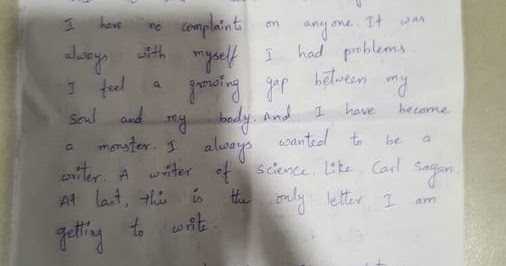 I have no complaints on anyone. It was
always with myself I had problems.
I feel a growing gap between my
soul and my body. And I have become
a monster. I always wanted to be a
writer. A writer of science, like Carl Sagan.
At last, this is the only letter I am
getting to write.